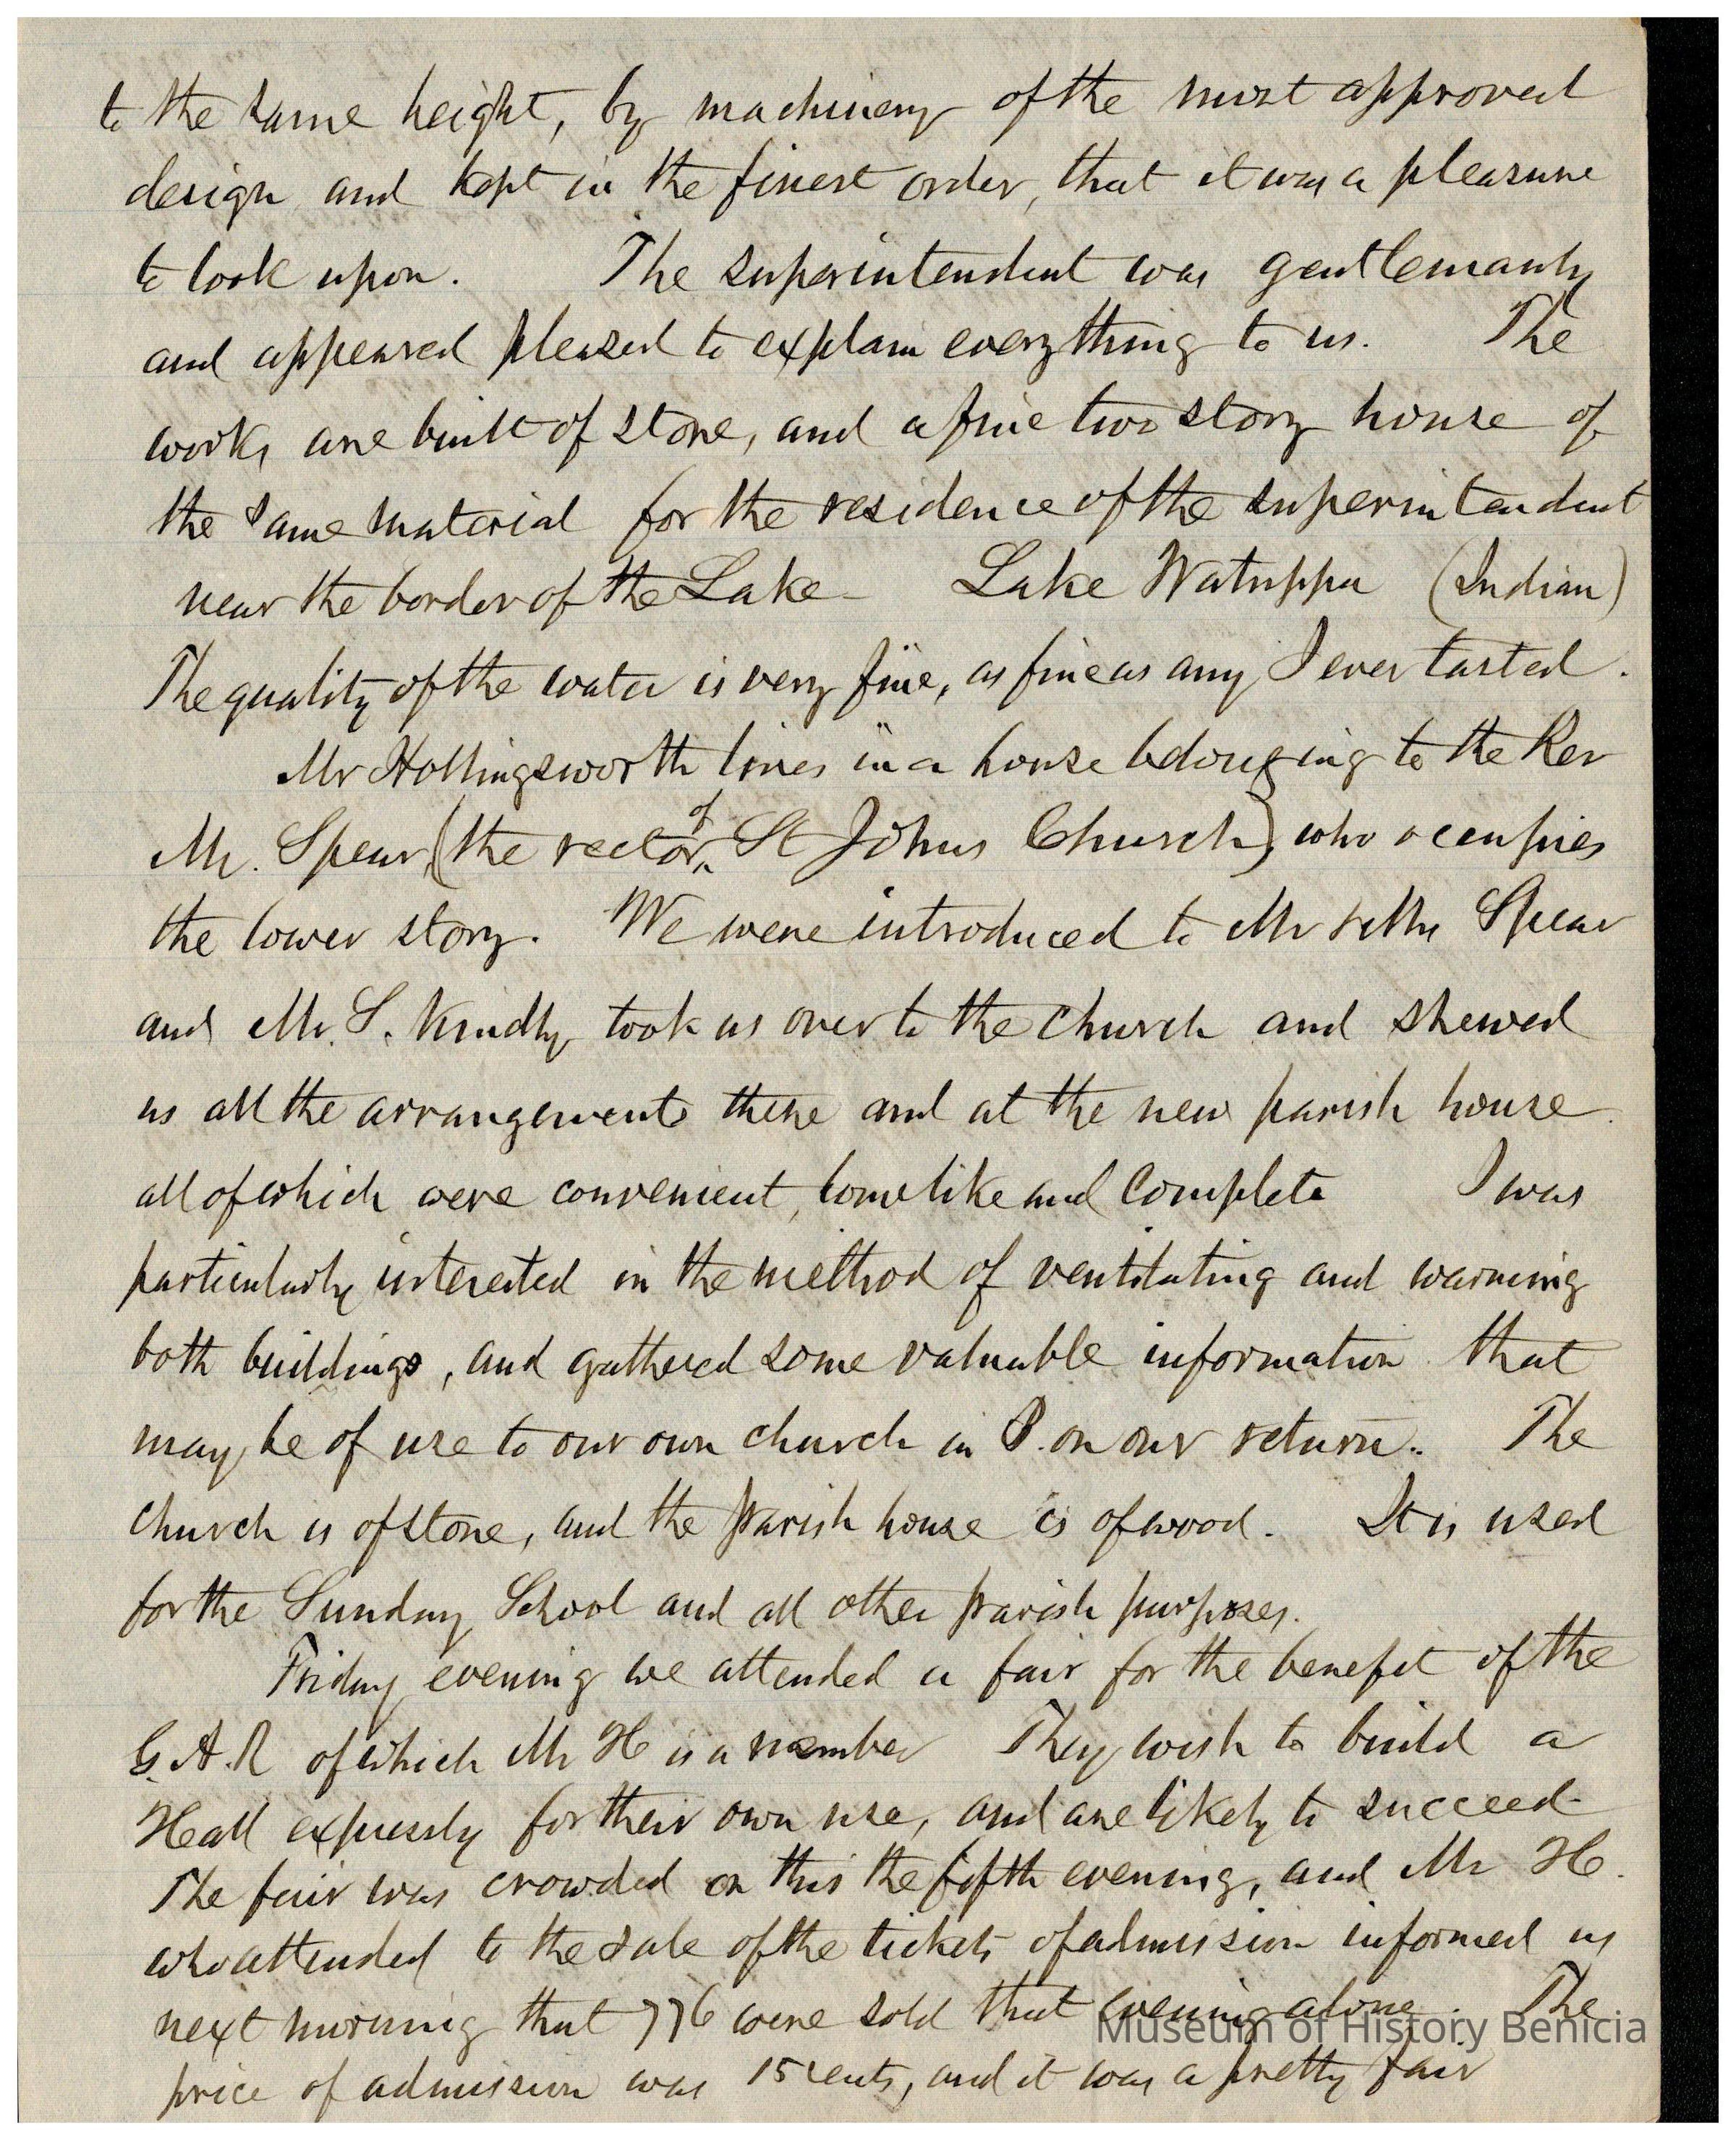 to the same height, by machinery of the most approved
design and kept in the finest order, that it was a pleasure
to look upon. The superintendent was gentlemanly
and appeared pleased to explain everything to us. The
works are built of stone, and a fine two story house of
the same material for the residence of the superintendent
near the border of the Lake - Lake Watuppa (Indian)
The quality of the water is very fine, as fine as any I ever tasted.
Mr Hollingsworth lives in a house belonging to the Rev
Mr. Spear (the rector of St Johns Church) who occupies
the lower story. We were introduced to Mr & Mrs Spear
and Mr. S. kindly took us over to the church and shewed
us all the arrangements there and at the new parish house.
all of which were convenient, homelike and complete I was
particularly interested in the method of ventilating and warming
both buildings, and gathered some valuable information that
may be of use to our own church in B. on our return. The
church is of stone, and the parish house is of wood. It is used
for the Sunday School and all other parish purposes.
Friday evening we attended a fair for the benefit of the
G.A.R of which Mr H is a member They wish to build a
Hall expressly for their own use, and are likely to succeed.
The fair was crowded on this the fifth evening, and Mr H.
who attended to the sale of the tickets of admission informed us
next morning that 776 were sold that evening alone. The
price of admission was 15 cents, and it was a pretty fair
Museum of History Benicia